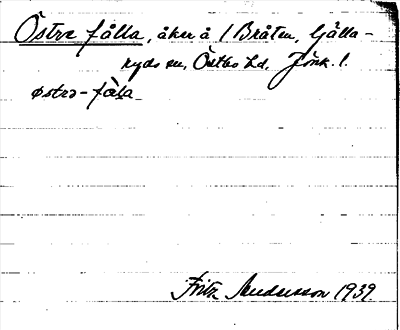 Östra fålla, åker å 1 Bråten, Gälla-
ryds sn, Östbo hd, Jönk. l.
østra-fåla
Fritz Andersson 1939